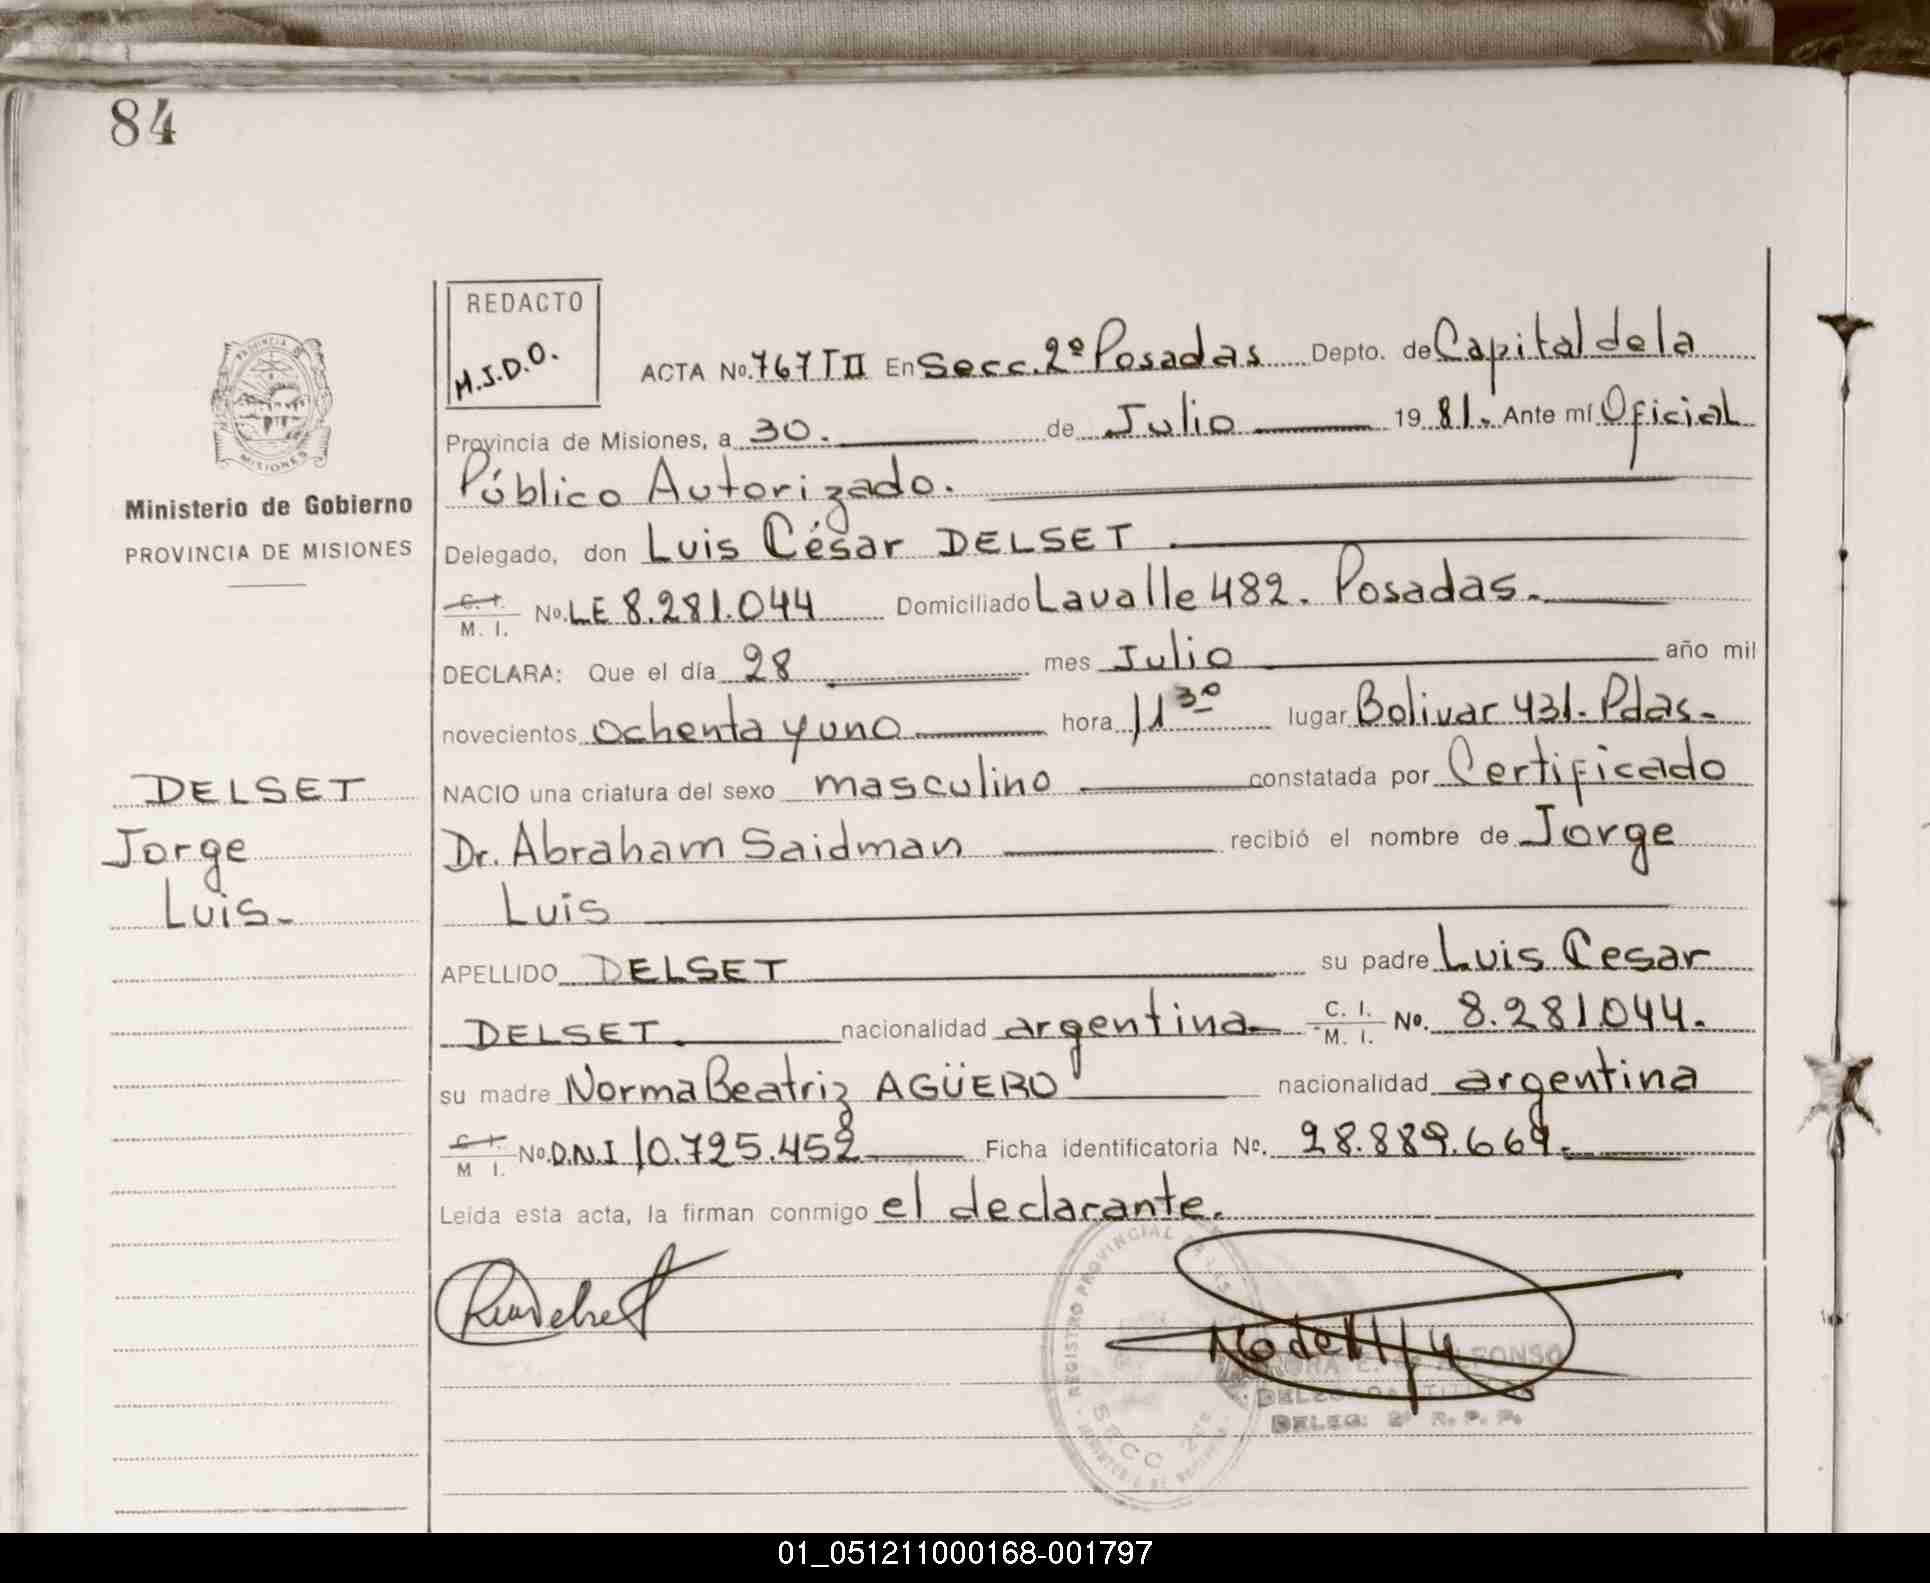 84
REDACTO
H.J.D.O.
ACTA No. 767 T II En Secc. 2º Posadas Depto. de Capital de la
Provincia de Misiones, a 30. de Julio 1981. Ante mí Oficial
Público Autorizado.
MISIONES
Ministerio de Gobierno
PROVINCIA DE MISIONES
Delegado, don Luis César DELSET
C. I. M. I. No. LE 8.281.044 Domiciliado Lavalle 482. Posadas.
DECLARA: Que el día 28 mes Julio año mil
novecientos ochenta y uno hora 11 30 lugar Bolivar 431. Pdas.
NACIO una criatura del sexo masculino constatada por Certificado
Dr. Abraham Saidman recibió el nombre de Jorge
Luis
DELSET
Jorge
Luis.
APELLIDO DELSET su padre Luis Cesar
DELSET. nacionalidad argentina C. I. M. I. No. 8.281.044.
su madre Norma Beatriz AGÜERO nacionalidad argentina
C. I. M I. No. D.N.I 10.725.452 Ficha identificatoria No. 28.889.669.
Leída esta acta, la firman conmigo el declarante.
REGISTRO PROVINCIAL
SECC 2
ALFONSO
DELEG: 2ª R. P. P.
01_051211000168-001797